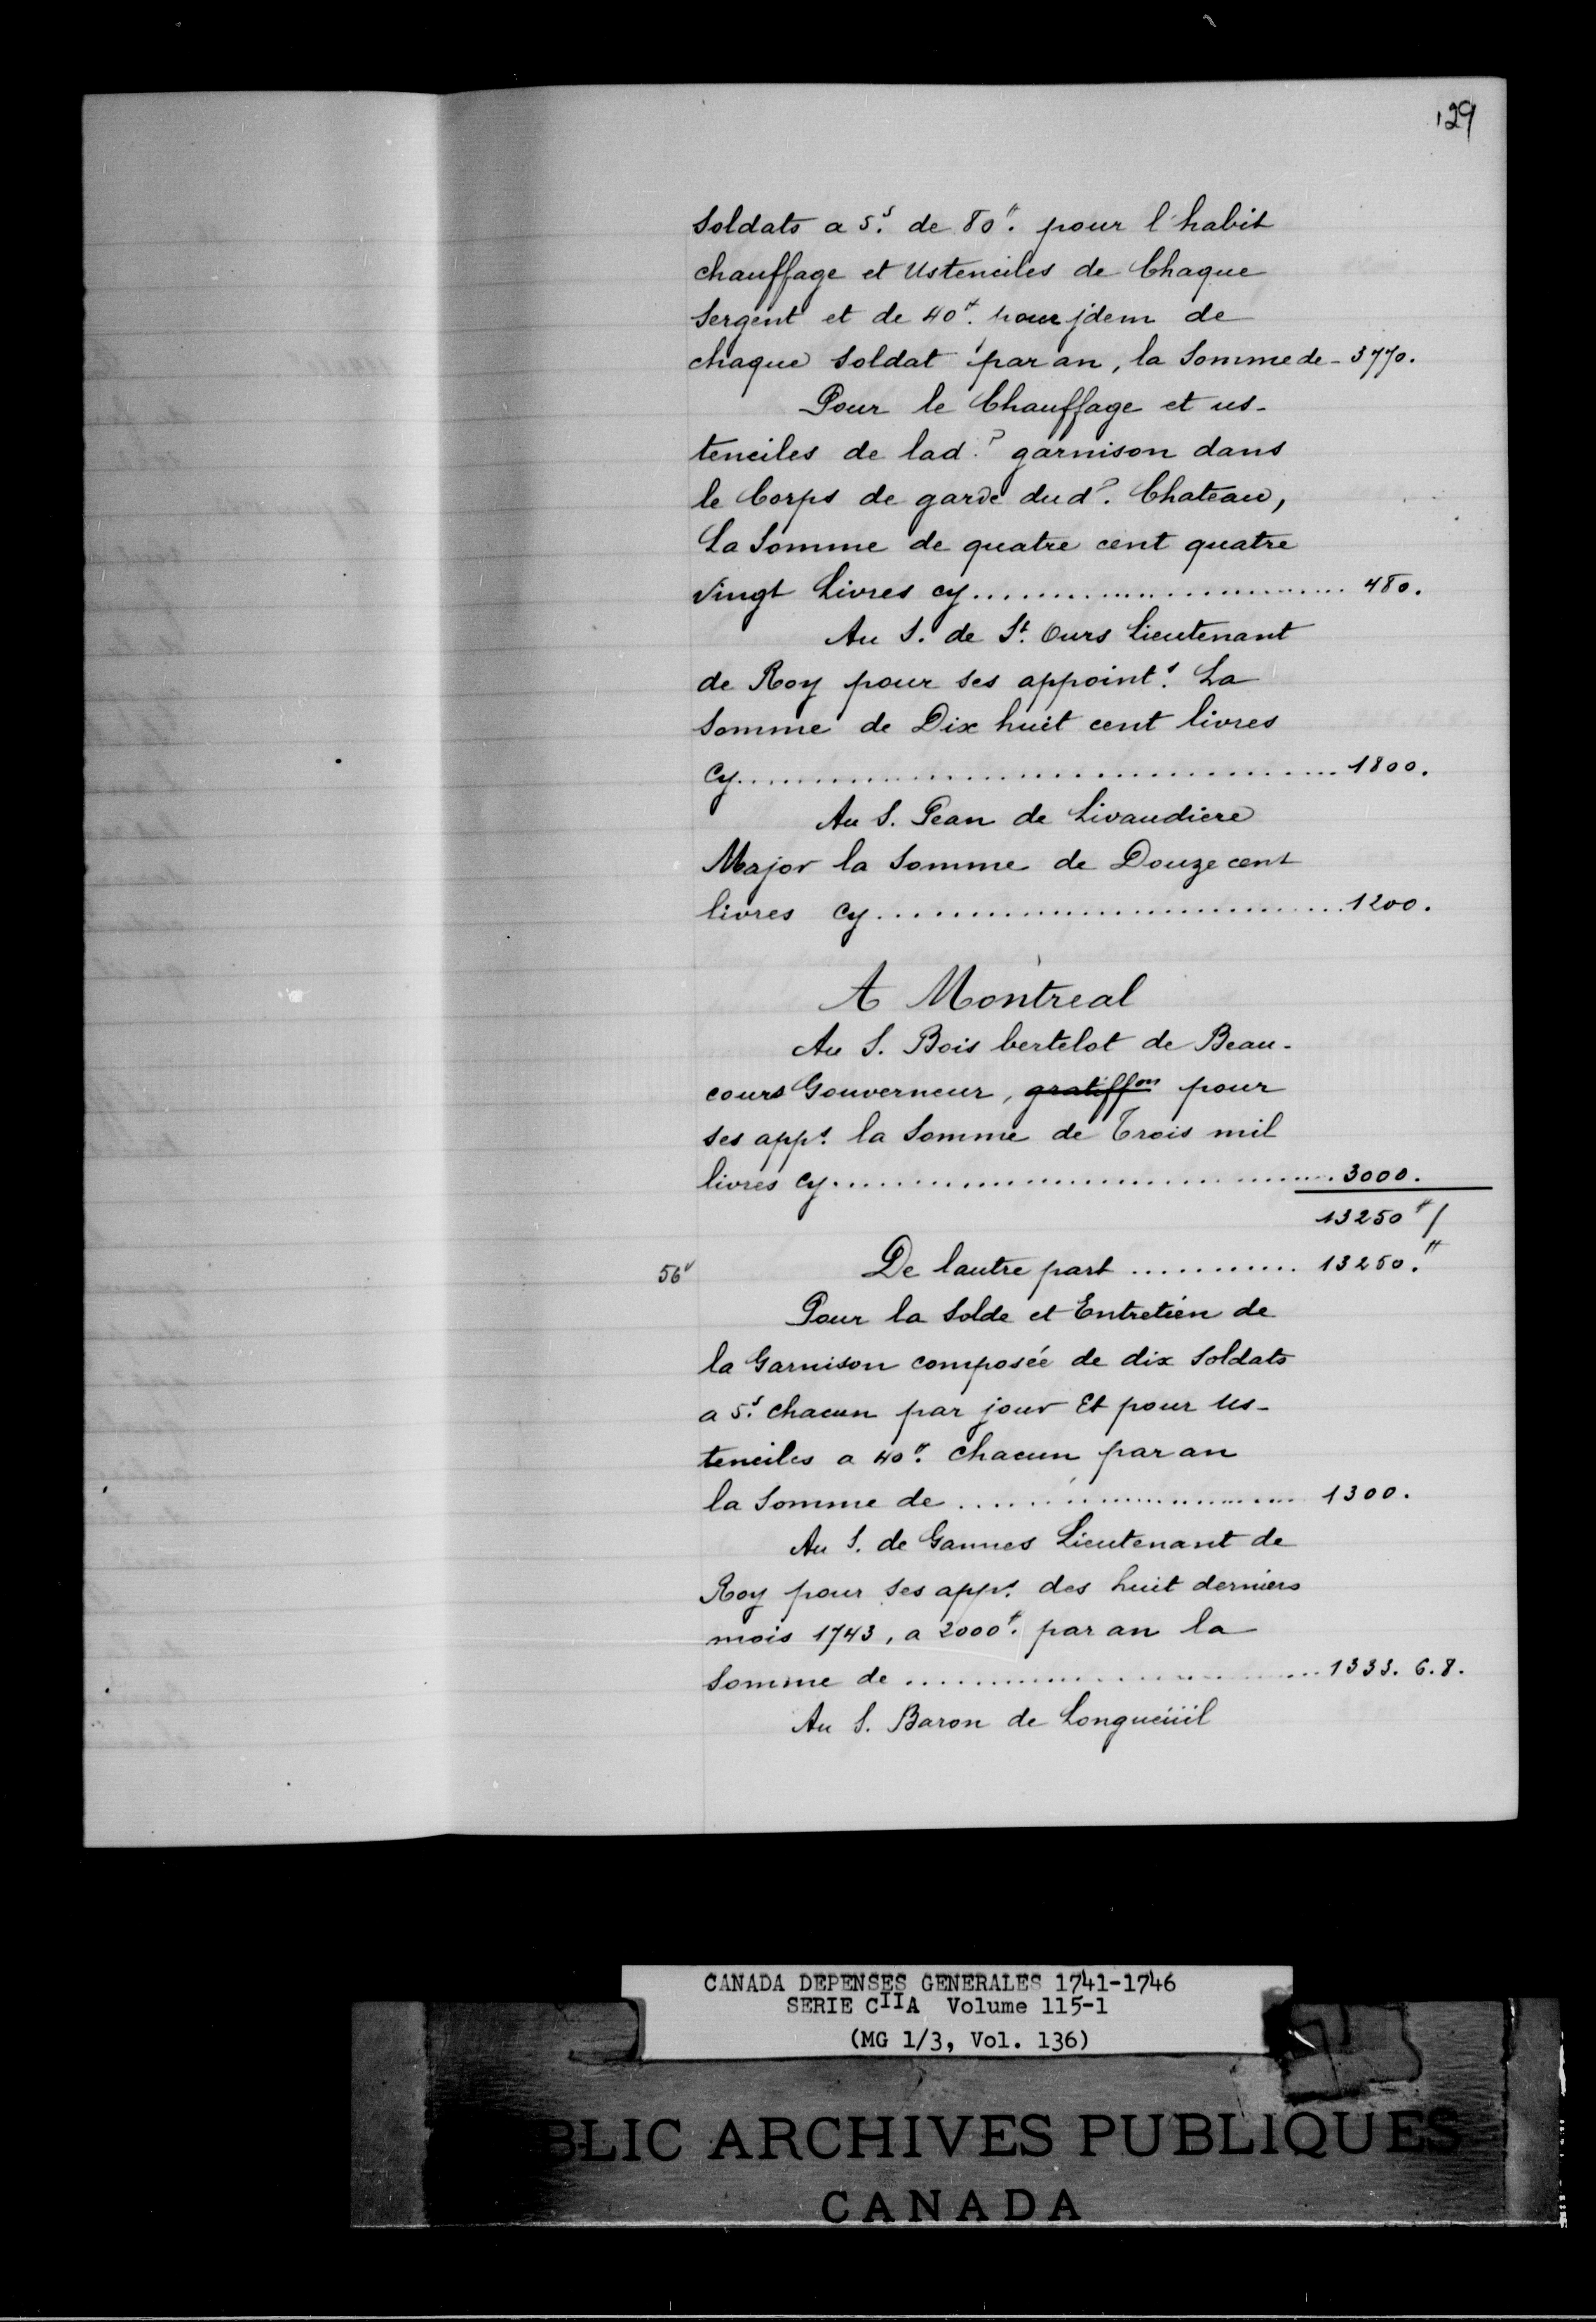 129
Soldats a 5.ˢ de 80.ᵗᵗ pour l'habit
chauffage et Ustenciles de Chaque
Sergent et de 40.ᵗᵗ pour jdem de
chaque Soldat par an, la Somme de - 3770.
Pour le Chauffage et us-
tenciles de lad.e garnison dans
le Corps de garde dud.e Chateau,
La Somme de quatre cent quatre
Vingt Livres cy........................... 480.
Au S. de S.t Ours Lieutenant
de Roy pour ses appoint.s La
Somme de Dix huit cent livres
Cy........................................ 1800.
Au S. Pean de Livaudiere
Major la Somme de Douze cent
livres Cy................................ 1200.
A Montreal
Au S. Bois bertelot de Beau-
cours Gouverneur, gratiffon pour
ses app.s la Somme de Trois mil
livres Cy................................. 3000.
13250ᵗᵗ/
56v De lautre part ............ 13250.ᵗᵗ
Pour la Solde et Entretien de
la Garnison composée de dix Soldats
a 5.ˢ chacun par jour Et pour Us-
tenciles a 40.ᵗᵗ chacun par an
la Somme de ........................ 1300.
Au S. de Gannes Lieutenant de
Roy pour ses app.s des huit derniers
mois 1743, a 2000.ᵗᵗ par an la
Somme de ............................ 1333. 6. 8.
Au S. Baron de Longueüil
CANADA DEPENSES GENERALES 1741-1746
SERIE CIIA Volume 115-1
(MG 1/3, Vol. 136)
BLIC ARCHIVES PUBLIQUES
CANADA